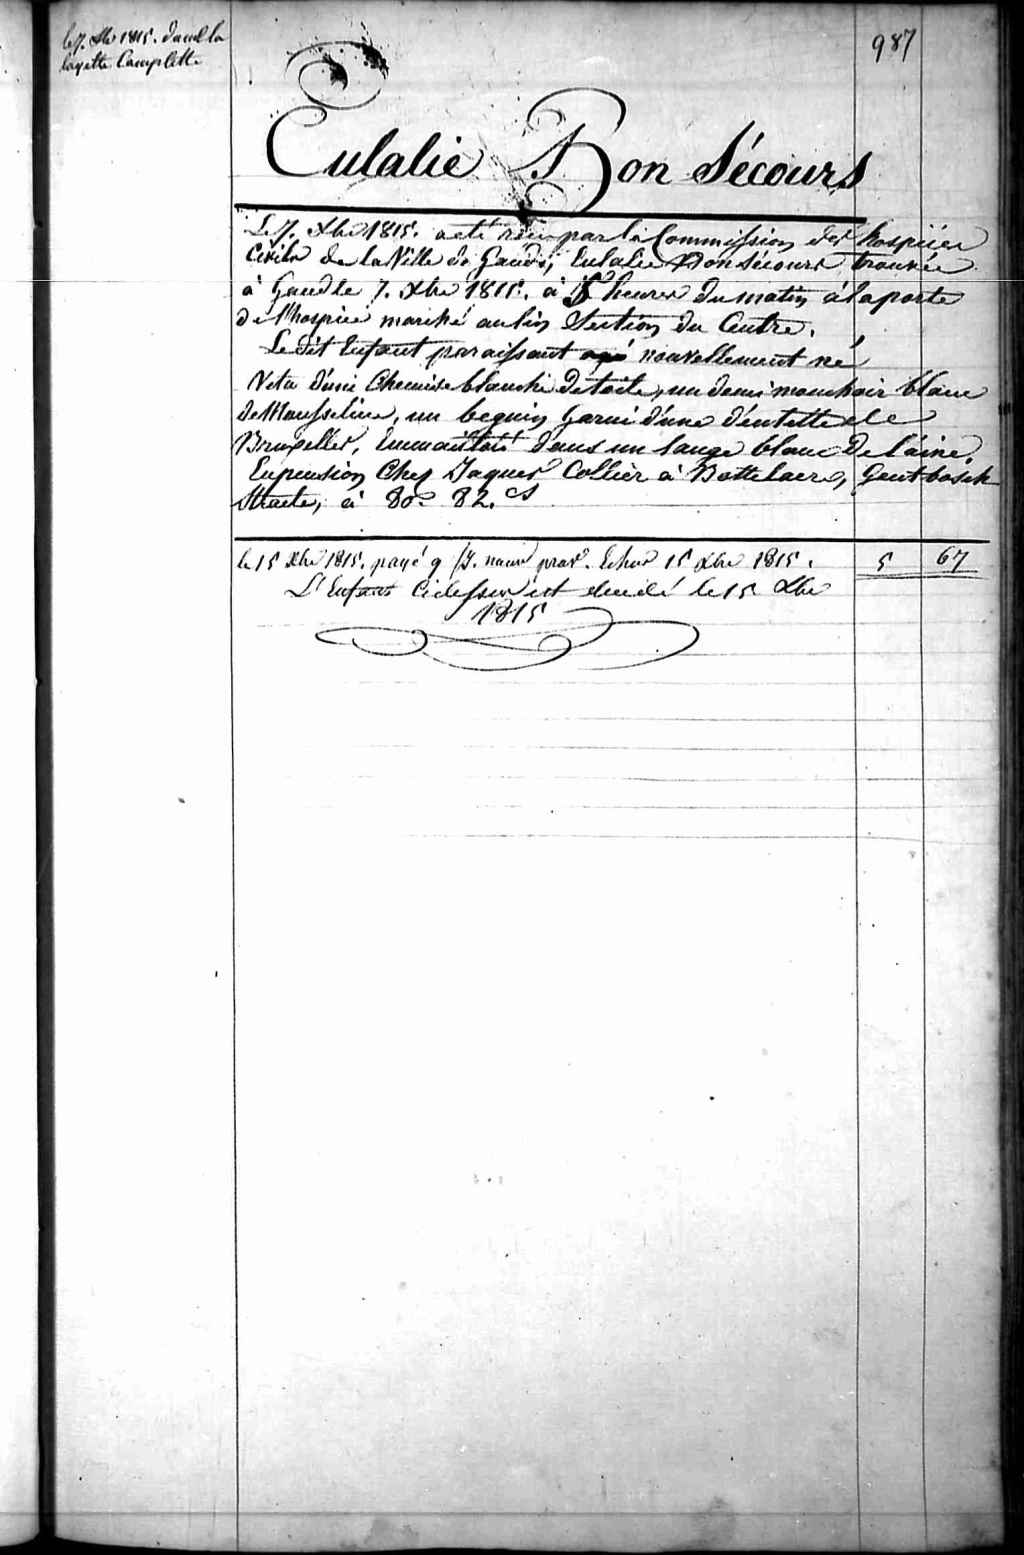 le 7. Xbr 1815. donné la
layette Complette
987
Eulalie Bon Sécours
Le 7. Xbre 1815. a été reçu par la Commission des hospices
Civils de la Ville de Gand, Eulalie Bon Sécours trouvée
à Gand le 7. Xbre 1815. à 5 heures du matin à la porte
de l'hospice marché au lin Section du Centre.
Le dit Enfant paraissant nouvellement né
Vetu d'une Chemise blanche de toile, un demi mouchoir blanc
de Mousseline, un beguin garni d'une dentelle de
Bruxelles, Emmaillotté dans un lange blanc de laine
En pension Chez Jaques Collier à Bottelaere, Gentbosch
Straete, à 80. 82. cs
le 15 Xbre 1815. payé 9 /J. nour prov. Echus 15 Xbre 1815. 5 67
L'Enfant Cidessus est decedé le 15 Xbre
1815